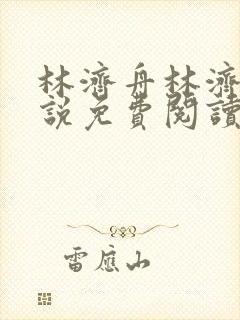 林濟舟林濟
說免費閱讀
雷應山